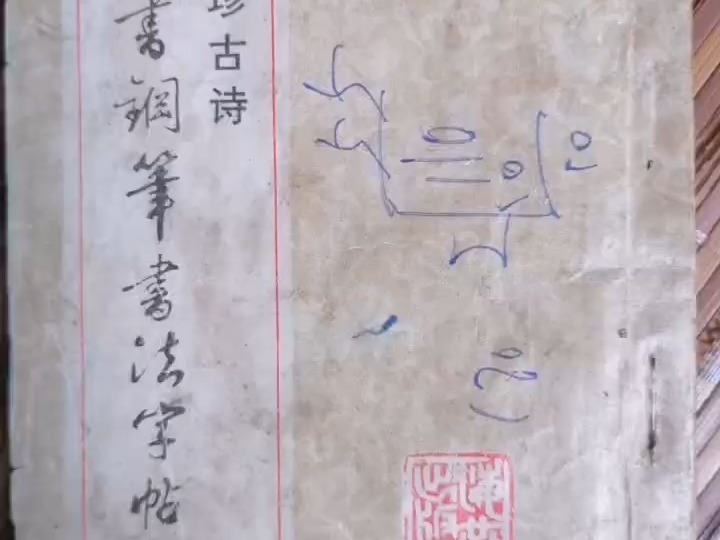 珍古诗
書鋼筆書法字帖